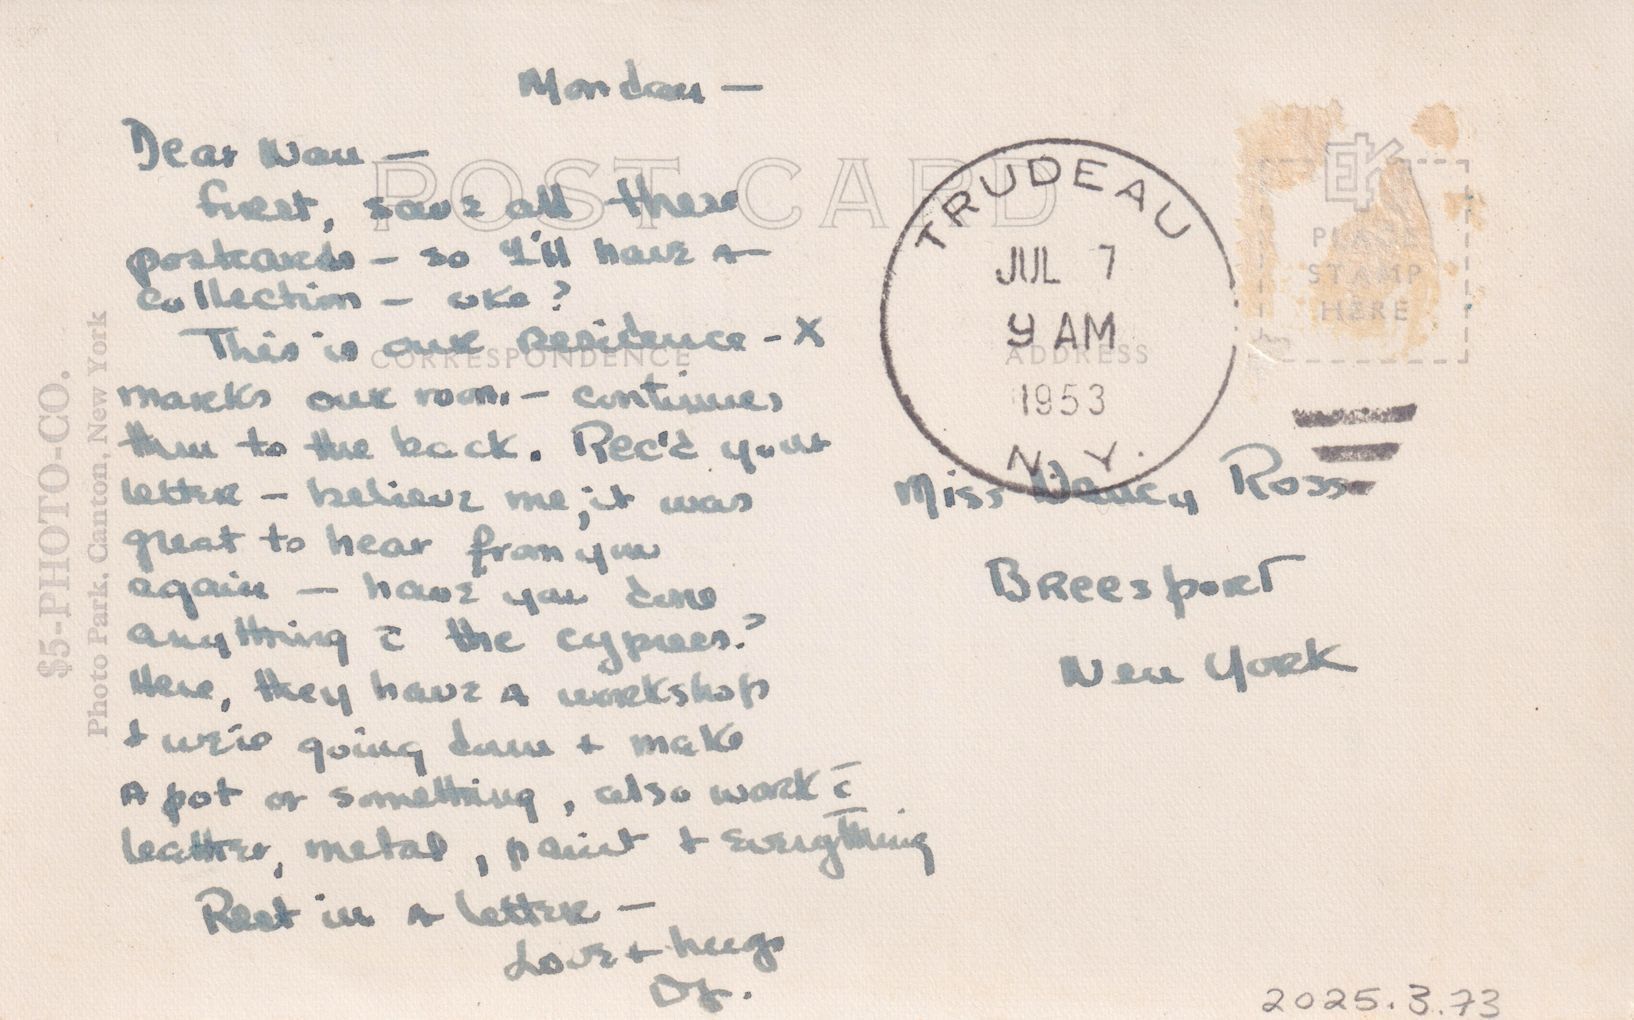 Monday —
Dear Nan —
First, save all these
postcards — so I'll have a
collection — oke?
This is our residence - X
marks our room. — continues
thru to the back. Rec'd your
letter — believe me, it was
great to hear from you
again — have you done
anything c̄ the cypress?
Here, they have a workshop
+ we're going down + make
a pot or something, also work c̄
leather, metal, paint + everything
Rest in a letter —
Love + hugs
POST CARD
CORRESPONDENCE
ADDRESS
PLACE
STAMP
HERE
TRUDEAU
JUL 7
9 AM
1953
N.Y.
Miss Nancy Ross
Breesport
New York
$5-PHOTO-CO.
Photo Park, Canton, New York
2025.3.73